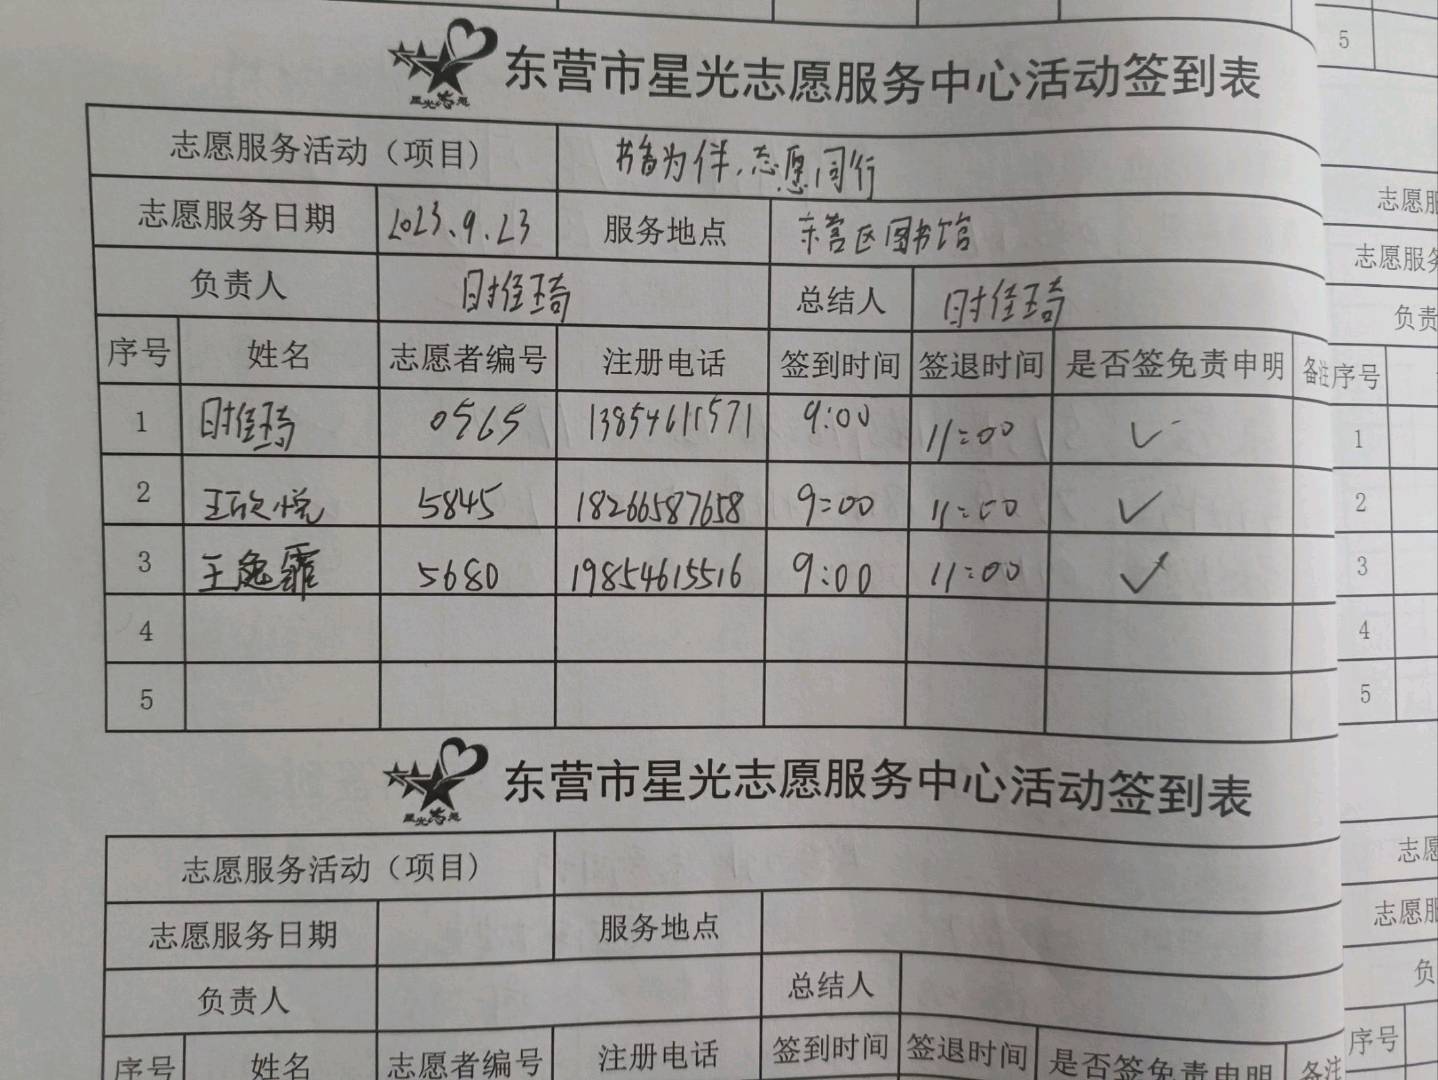 5
星光志愿
东营市星光志愿服务中心活动签到表
志愿服务活动（项目） 书香为伴,志愿同行
志愿服务日期 2023.9.23 服务地点 东营区图书馆
负责人 时维琦 总结人 时佳琦
序号 姓名 志愿者编号 注册电话 签到时间 签退时间 是否签免责申明 备注
1 时维琦 0565 13854611571 9:00 11:00 ✓
2 王欣悦 5845 18266587658 9:00 11:00 ✓
3 王逸霏 5680 19854615516 9:00 11:00 ✓
4
5
志愿服
志愿服务
负责
序号
1
2
3
4
5
星光志愿
东营市星光志愿服务中心活动签到表
志愿服务活动（项目）
志愿服务日期 服务地点
负责人 总结人
序号 姓名 志愿者编号 注册电话 签到时间 签退时间 是否签免责申明 备注
志愿
志愿服
负
序号